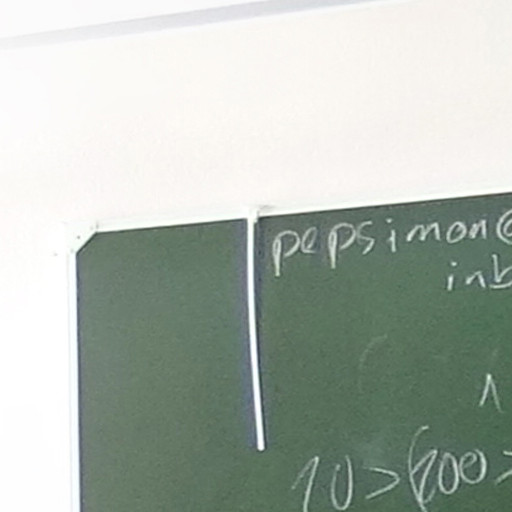 pepsimon@
inb
1
10>(200>